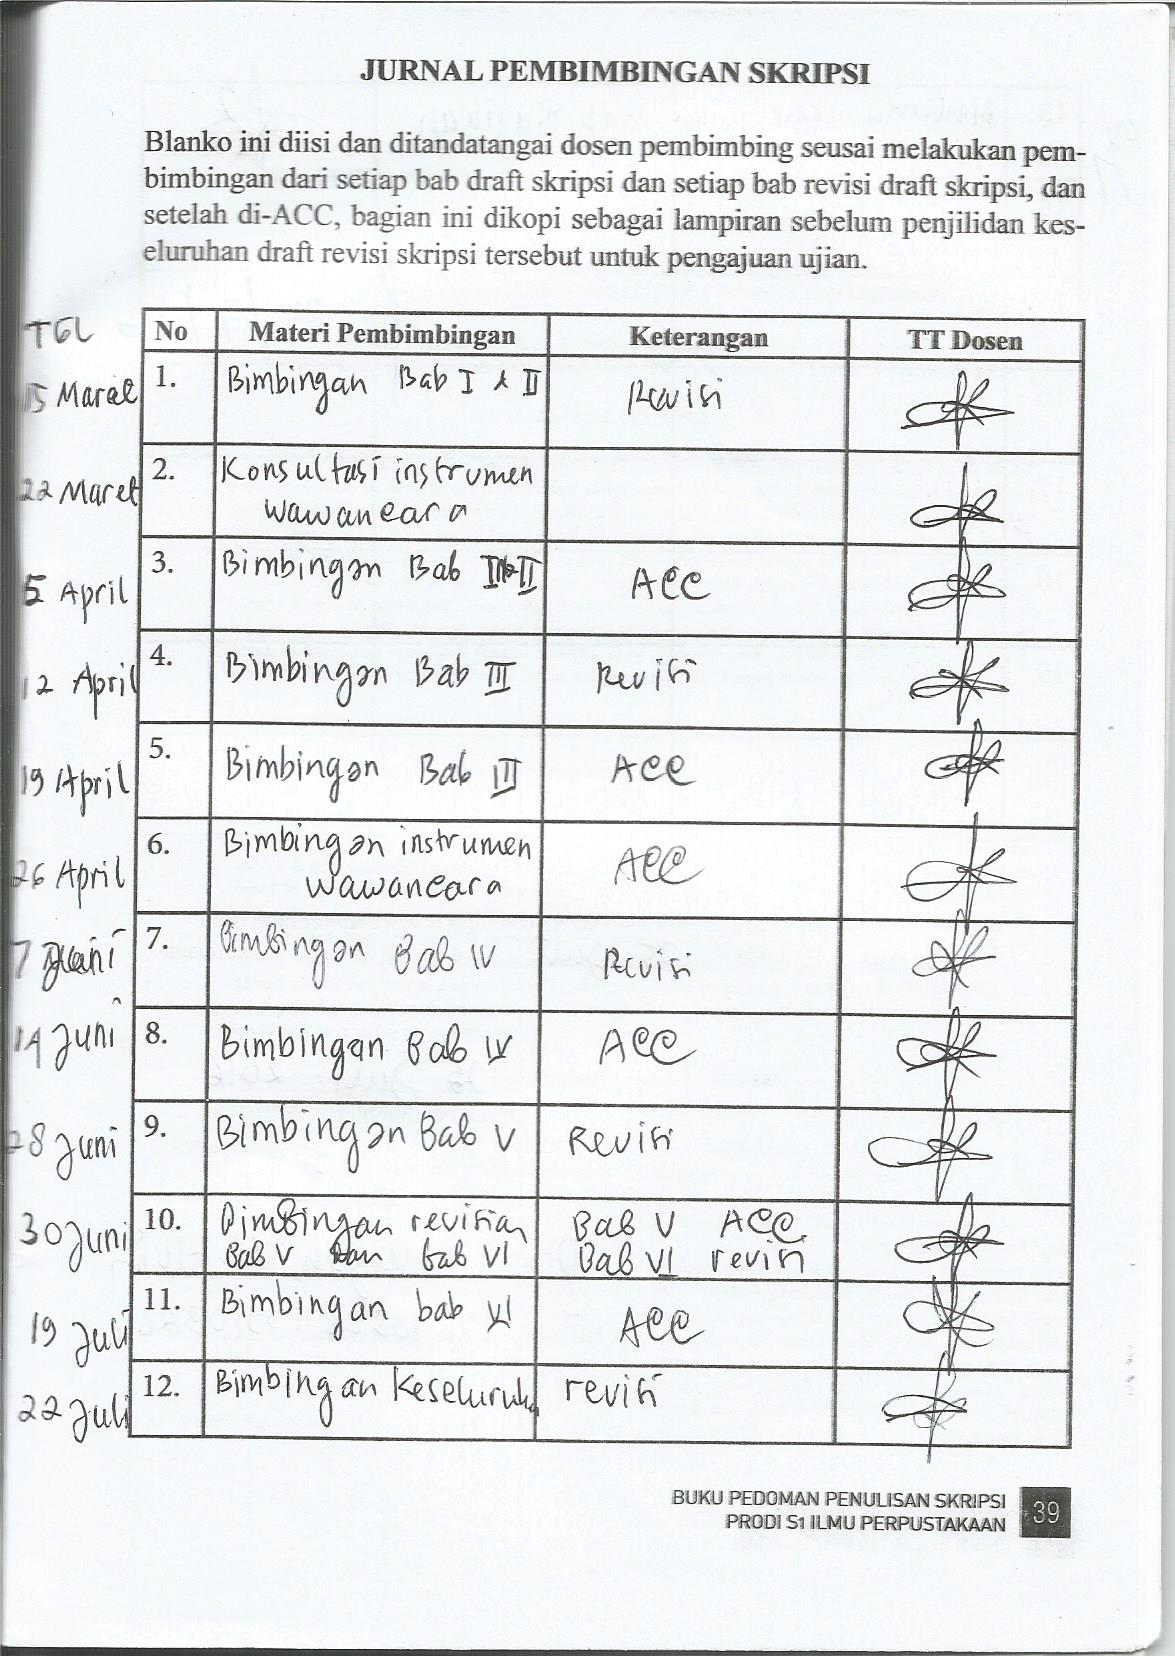 JURNAL PEMBIMBINGAN SKRIPSI
Blanko ini diisi dan ditandatangai dosen pembimbing seusai melakukan pem-
bimbingan dari setiap bab draft skripsi dan setiap bab revisi draft skripsi, dan
setelah di-ACC, bagian ini dikopi sebagai lampiran sebelum penjilidan kes-
eluruhan draft revisi skripsi tersebut untuk pengajuan ujian.
TGL No Materi Pembimbingan Keterangan TT Dosen
15 Maret 1. Bimbingan Bab I & II Revisi
22 Maret 2. Konsultasi instrumen
wawancara
5 April 3. Bimbingan Bab ACC
12 April 4. Bimbingan Bab III Revisi
19 April 5. Bimbingan Bab III ACC
26 April 6. Bimbingan instrumen
wawancara ACC
7 Juni 7. Bimbingan Bab IV Revisi
14 Juni 8. Bimbingan Bab IV ACC
28 Juni 9. Bimbingan Bab V Revisi
30 Juni 10. Bimbingan revisian Bab V ACC
Bab V Dan bab VI Bab VI revisi
19 Juli 11. Bimbingan bab VI ACC
22 Juli 12. Bimbingan Keseluruhan revisi
BUKU PEDOMAN PENULISAN SKRIPSI
PRODI S1 ILMU PERPUSTAKAAN 39